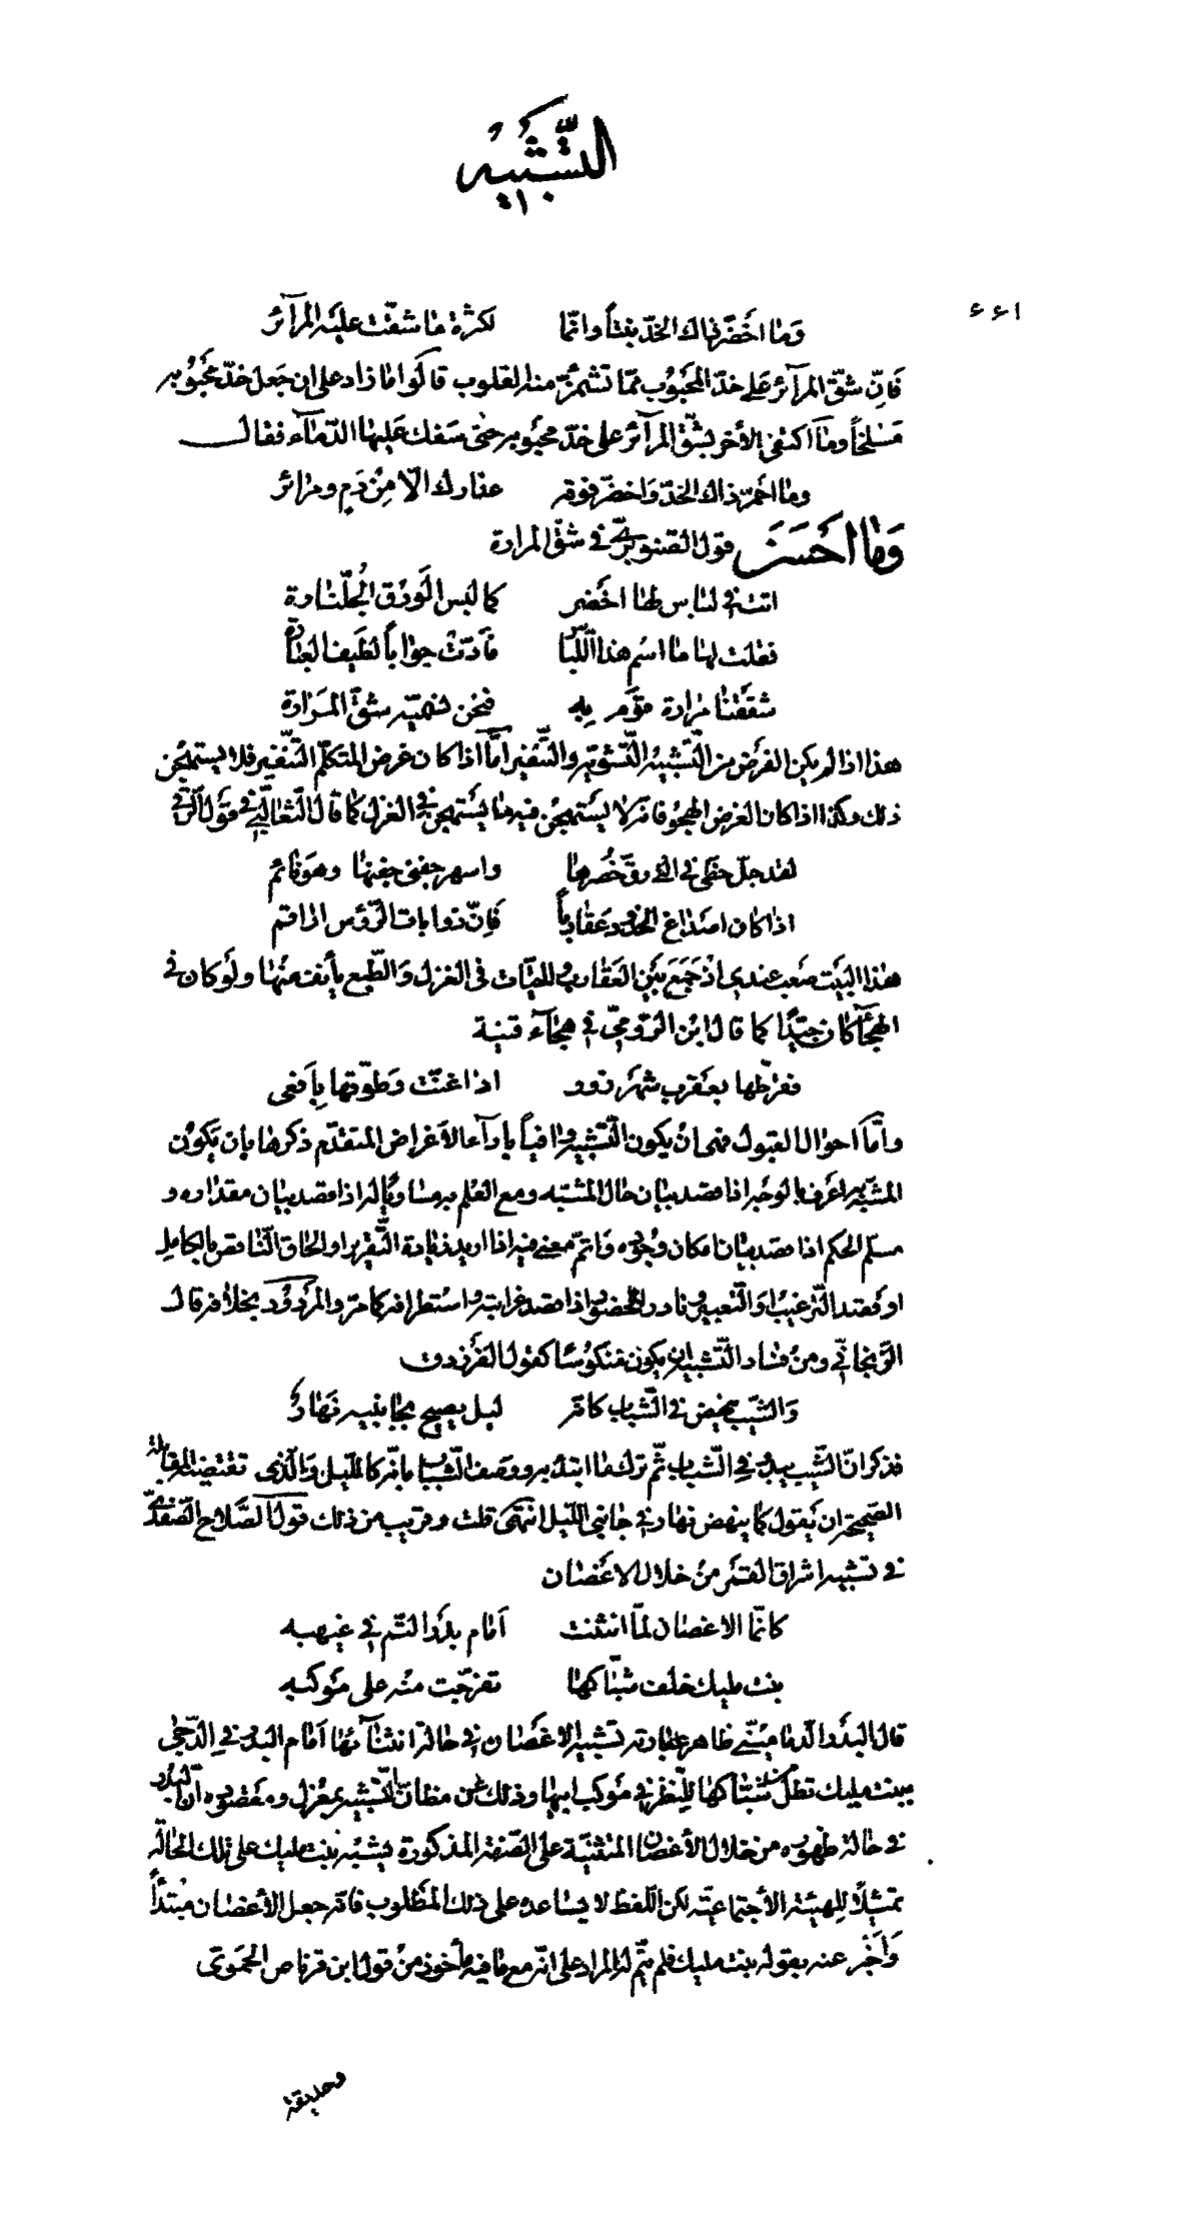 التَّشْبِيْهُ
٤٤١
وَمَا اخْضَرَّ ذاك الخدّ نبتاً وانّما لكثرة ما شقّت عليه المرآئر
فَانّ شقّ المرآئر على خدّ المحبوب ممّا تشمئزّ منه القلوب قالوا ما زاد على ان جعل خدّ محبوبه
مَسْلخاً وما اكتفى الأخر بشقّ المرآئر على خدّ محبوبه حتى سفك عليها الدّمآء فقال
وما احمرّ ذاك الخدّ واخضرّ فوقه عذارك الّا مِنْ دَمٍ ومرائر
وَمَا اَحْسَنَ قول الصّنوبريّ في شقّ المرارة
اتت في لباس لها اخضر كما لبس الورق الجلّنارة
فقلت لها ما اسم هذا اللّبا فأدّت جوابا لطيف العبارة
شققنا مرارة قوم به فنحن نسمّيه شقّ المرارة
هذا اذا لم يكن الغرض من التّشبيه التّشويه والتّنفير امّا اذا كان غرض المتكلّم التّنفير فلا يستهجن
ذلك وكذا اذا كان الغرض الهجو فانّه لا يستهجن فيه ما يستهجن في الغزل كما قال الثّعالبيّ في قول
لقد جلّ حظّي في الّذي رقّ خصرها واسهر جفني جفنها وهو نائم
اذا كان اصداغ الخدود عقارباً فانّ ذوابات الرّؤس اراقم
هذا البيت صعب عندي اذ جمع بين العقارب والحيّات في الغزل والطّبع يأنف منها ولو كان في
الهجآء كان جيّدًا كما قال ابن الرّوميّ في هجآء قينة
فقرّطها بعقرب شهرزور اذا غنّت وطوّقها بأفعى
وامّا احوال القبول فهي ان يكون التّشبيه وافياً بادآء الاغراض المتقدّم ذكرها بان يكون
المشبّه به اعرف بالوجه اذا قصد بيان حال المشبّه ومع العلم به مساويًا له اذا قصد بيان مقداره و
مسلّم الحكم اذا قصد بيان امكان وجوده واتمّ معنى فيه اذا اريد زيادة التّقرير او الحاق النّاقص بالكامل
او قصد التّرغيب او التّعييب ونادر الحضور اذا قصد غرابته واستطرافه كما مرّ والمردود بخلافه قال
الزّنجانيّ ومن فساد التّشبيه ان يكون منكوسًا كقول الفرزدق
والشّيب ينهض في الشّباب كانّه ليل يصيح بجانبيه نهار
فذكر انّ الشّيب يبدو في الشّباب ثمّ ترك ما ابتدا به ووصف الشّباب بانّه كالليل والّذي تقتضيه المقابلة
الصّحيحة ان يقول كما ينهض نهار في جانبي اللّيل انتهى قلت وقريب من ذلك قول الصّلاح الصّفديّ
في تشبيه اشراق القمر من خلال الاغصان
كانّما الاغصان لمّا انثنت امام بدر التّمّ في غيهبه
بنت مليك خلف شبّاكها تفرّجت منه على موكبه
قال البدر الدّماميني ظاهر عبارته تشبيه الاغصان في حالة انثنائها امام البدر في الدّجى
ببنت مليك تطلّ من شبّاكها للنّظر في موكب ابيها وذلك عن مظانّ التّشبيه بمعزل ومقصوده انّ البدر
في حالة ظهوره من خلال الأغصان المنثنية على الصّفة المذكورة يشبه بنت مليك على تلك الحالة
تمثيلًا للهيئة الأجتماعيّة لكن اللّفظ لا يساعده على ذلك المطلوب فانّه جعل الأغصان مبتدأ
وأخبر عنه بقوله بنت مليك فلم يتمّ له المراد على انّه مع ما فيه مأخوذ من قول ابن قرناص الحموي
وحديقة